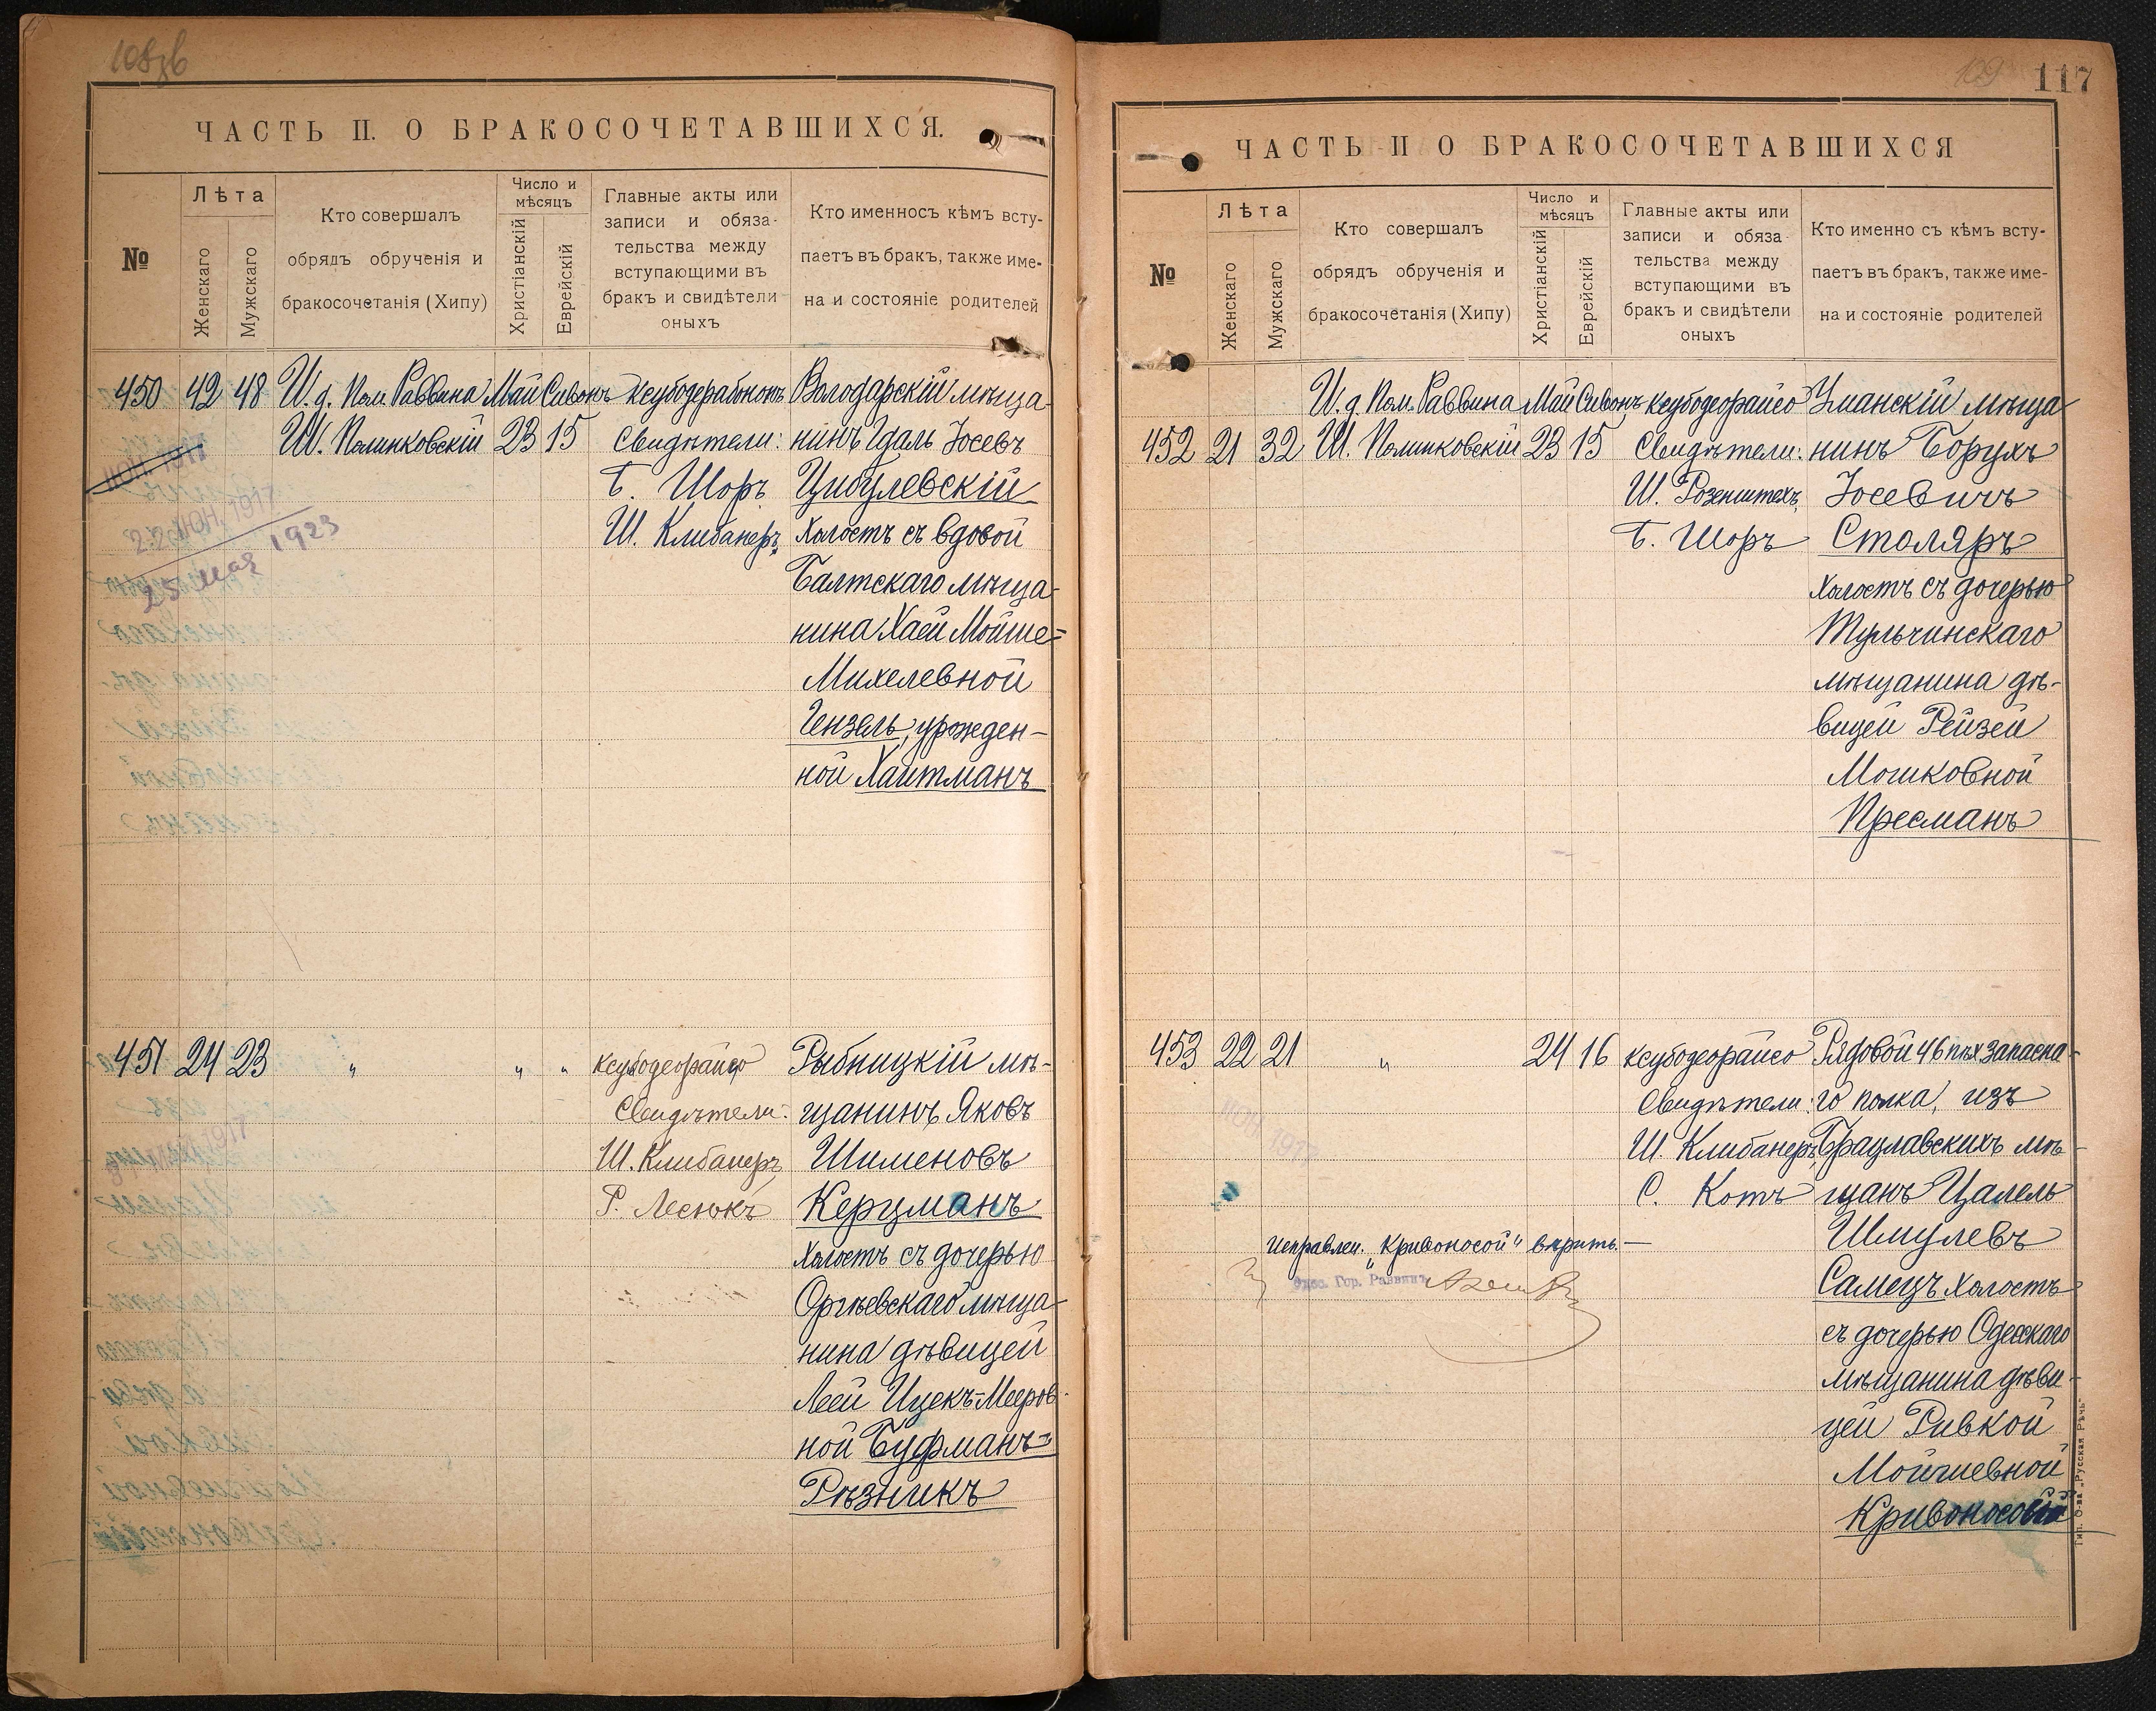 108зв
ЧАСТЬ II. О БРАКОСОЧЕТАВШИХСЯ.
№
Лѣта
Женскаго
Мужскаго
Кто совершалъ
обрядъ обрученія и
бракосочетанія (Хипу)
Число и
мѣсяцъ
Христіанскій
Еврейскій
Главные акты или
записи и обяза-
тельства между
вступающими въ
бракъ и свидѣтели
оныхъ
Кто именносъ кѣмъ всту-
паетъ въ бракъ, также име-
на и состояніе родителей
450 42 48 И.д. Пом. Раввина Май Сивонъ Володарскій мѣща-
Ш. Полинковскій 23 15 Свидѣтели: нинъ Идаль Іосевъ
Б. Шоръ Цибулевскій
Ш. Клибанеръ, холостъ съ вдовой
Балтскаго мѣща-
нина Хаей Мойше=
Михелевной
Гензель, урожден-
ной Хаитманъ
ІЮН. 1917
22 ІЮН. 1917
25 мая 1923
451 24 23 " " " ксубодеорайсо Рыбницкій мѣ-
Свидѣтели: щанинъ Яковъ
Ш. Клибанеръ, Шименовъ
Р. Лесюкъ Керцманъ
холостъ съ дочерью
Оргѣевскаго мѣща-
нина дѣвицей
Леей Ицекъ-Мееров-
ной Буфманъ=
Рѣзникъ
109
117
ЧАСТЬ II О БРАКОСОЧЕТАВШИХСЯ
№
Лѣта
Женскаго
Мужскаго
Кто совершалъ
обрядъ обрученія и
бракосочетанія (Хипу)
Число и
мѣсяцъ
Христіанскій
Еврейскій
Главные акты или
записи и обяза-
тельства между
вступающими въ
бракъ и свидѣтели
оныхъ
Кто именно съ кѣмъ всту-
паетъ въ бракъ, также име-
на и состояніе родителей
И.д. Пом. Раввина Май Сивонъ ксубодеорайсо Уманскій мѣща-
452 21 32 Ш. Полинковскій 23 15 Свидѣтели: нинъ Борухъ
Ш. Розенштехъ, Іосевичъ
Б. Шоръ Столяръ
холостъ съ дочерью
Тульчинскаго
мѣщанина дѣ-
вицей Рейзей
Мошковной
Пресманъ
453 22 21 " 24 16 ксубодеорайсо Рядовой 46 пѣх запасна-
Свидѣтели: го полка, изъ
Ш Клибанеръ, Брацлавскихъ мѣ-
С. Котъ щанъ Цалель
Шмулевъ
Самецъ холостъ
съ дочерью Одесскаго
мѣщанина дѣви-
цей Ривкой
Мойшевной
Кривоносой
ІЮН. 1917
исправлен. "Кривоносой" вѣрить.—
Одес. Гор. Раввинъ
Тип. О-ва „Русская Рѣчь"